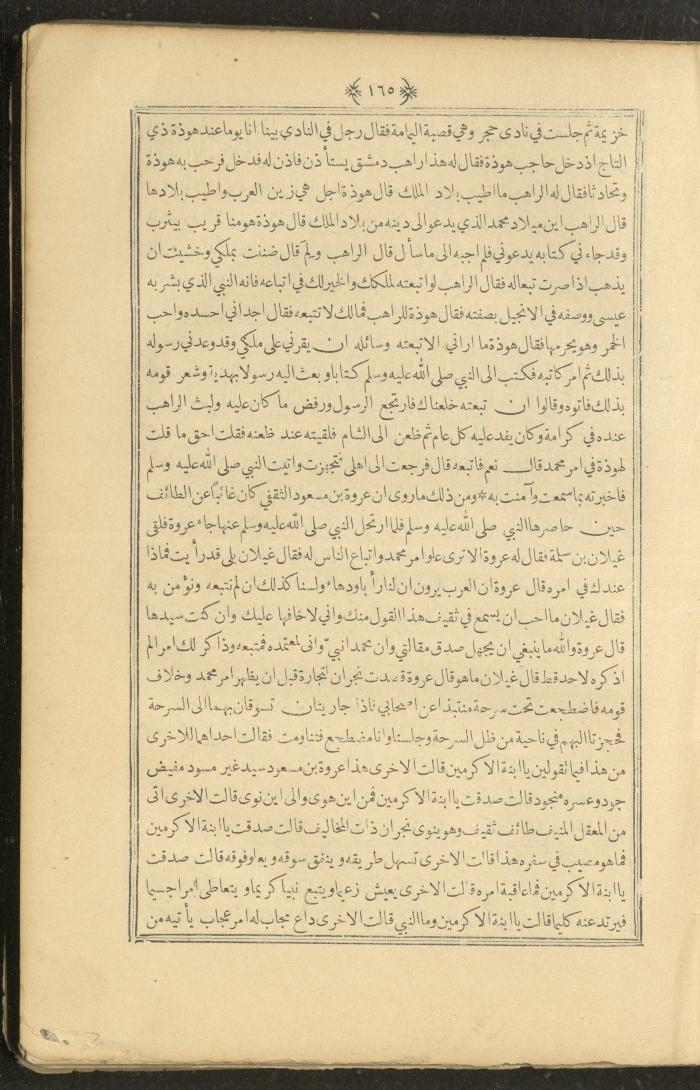 ١٦٥
خزيمة ثم جلست في نادى حجر وهي قصبة اليمامة فقال رجل في النادي بينا انا يوما عند هوذة ذي
التاج اذ دخل حاجب هوذة فقال له هذا راهب دمشق يستأذن فاذن له فدخل فرحب به هوذة
وتحادثا فقال له الراهب ما اطيب بلاد الملك قال هوذة اجل هي زين العرب واطيب بلادها
قال الراهب اين ميلاد محمد الذي يدعو الى دينه من بلاد الملك قال هوذة هو منا قريب بيثرب
وقد جاءني كتابه يدعوني فلم اجبه الى ما سأل قال الراهب ولم قال ضننت بملكي وخشيت ان
يذهب اذا صرت تبعا له فقال الراهب لو اتبعته لملكك والخير لك في اتباعه فانه النبي الذي بشر به
عيسى ووصفه في الانجيل بصفته فقال هوذة للراهب فمالك لا تتبعه فقال اجداني احسده واحب
الخمر وهو يحرمها فقال هوذة ما اراني الا تبعته وسائله ان يقرني على ملكي وقد وعدني رسوله
بذلك ثم امر كاتبه فكتب الى النبي صلى الله عليه وسلم كتابا وبعث اليه رسولا بهدية وشعر قومه
بذلك فاتوه وقالوا ان تبعته خلعناك فارتجع الرسول ورفض ما كان عليه ولبث الراهب
عنده في كرامة وكان يفد عليه كل عام ثم ظعن الى الشام فلقيته عند ظعنه فقلت احق ما قلت
لهوذة في امر محمد قال نعم فاتبعه قال فرجعت الى اهلى فتجهزت واتيت النبي صلى الله عليه وسلم
فاخبرته بما سمعت وآمنت به * ومن ذلك ما روى ان عروة بن مسعود الثقفي كان غائبا عن الطائف
حين حاصرها النبي صلى الله عليه وسلم فلما ارتحل النبي صلى الله عليه وسلم عنها جاء عروة فلقى
غيلان بن سلمة فقال له عروة الا ترى علو امر محمد واتباع الناس له فقال غيلان بلى قد رأيت فماذا
عندك في امره قال عروة ان العرب يرون ان لنا رأيا ودهاء ولسنا كذلك ان لم نتبعه ونؤمن به
فقال غيلان ما احب ان يسمع في ثقيف هذا القول منك واني لاخافها عليك وان كنت سيدها
قال عروة والله ما ينبغي ان يجهل صدق مقالتي وان محمدا نبي وانى لمعتمده فمتبعه وذاكر لك امرا لم
اذكره لاحد قط قال غيلان ما هو قال عروة قصدت نجران لتجارة قبل ان يظهر امر محمد وخلاف
قومه فاضطجعت تحت سرحة منتبذا عن اصحابي فاذا جاريتان تسوقان بهما الى السرحة
فحجزتا البهم في ناحية من ظل السرحة وجلستا وانا مضطجع فتناومت فقالت احداهما للاخرى
من هذا فيما تقولين يا ابنة الاكرمين قالت الاخرى هذا عروة بن مسعود سيد غير مسود مفيض
جود وعسره منجود قالت صدقت يا ابنة الاكرمين فمن اين هوى والى اين نوى قالت الاخرى اتى
من المعقل المنيف طائف ثقيف وهو ينوى نجران ذات المخاليف قالت صدقت يا ابنة الاكرمين
فما هو مصيب في سفره هذا قالت الاخرى تسهل طريقه وينفق سوقه ويعلو فوقه قالت صدقت
يا ابنة الاكرمين فما عاقبة امره قالت الاخرى يعيش زعيما ويتبع نبيا كريما ويتعاطى امرا جسيما
فيرتد عنه كليما قالت يا ابنة الاكرمين وما النبي قالت الاخرى داع مجاب له امر عجاب يأتيه من